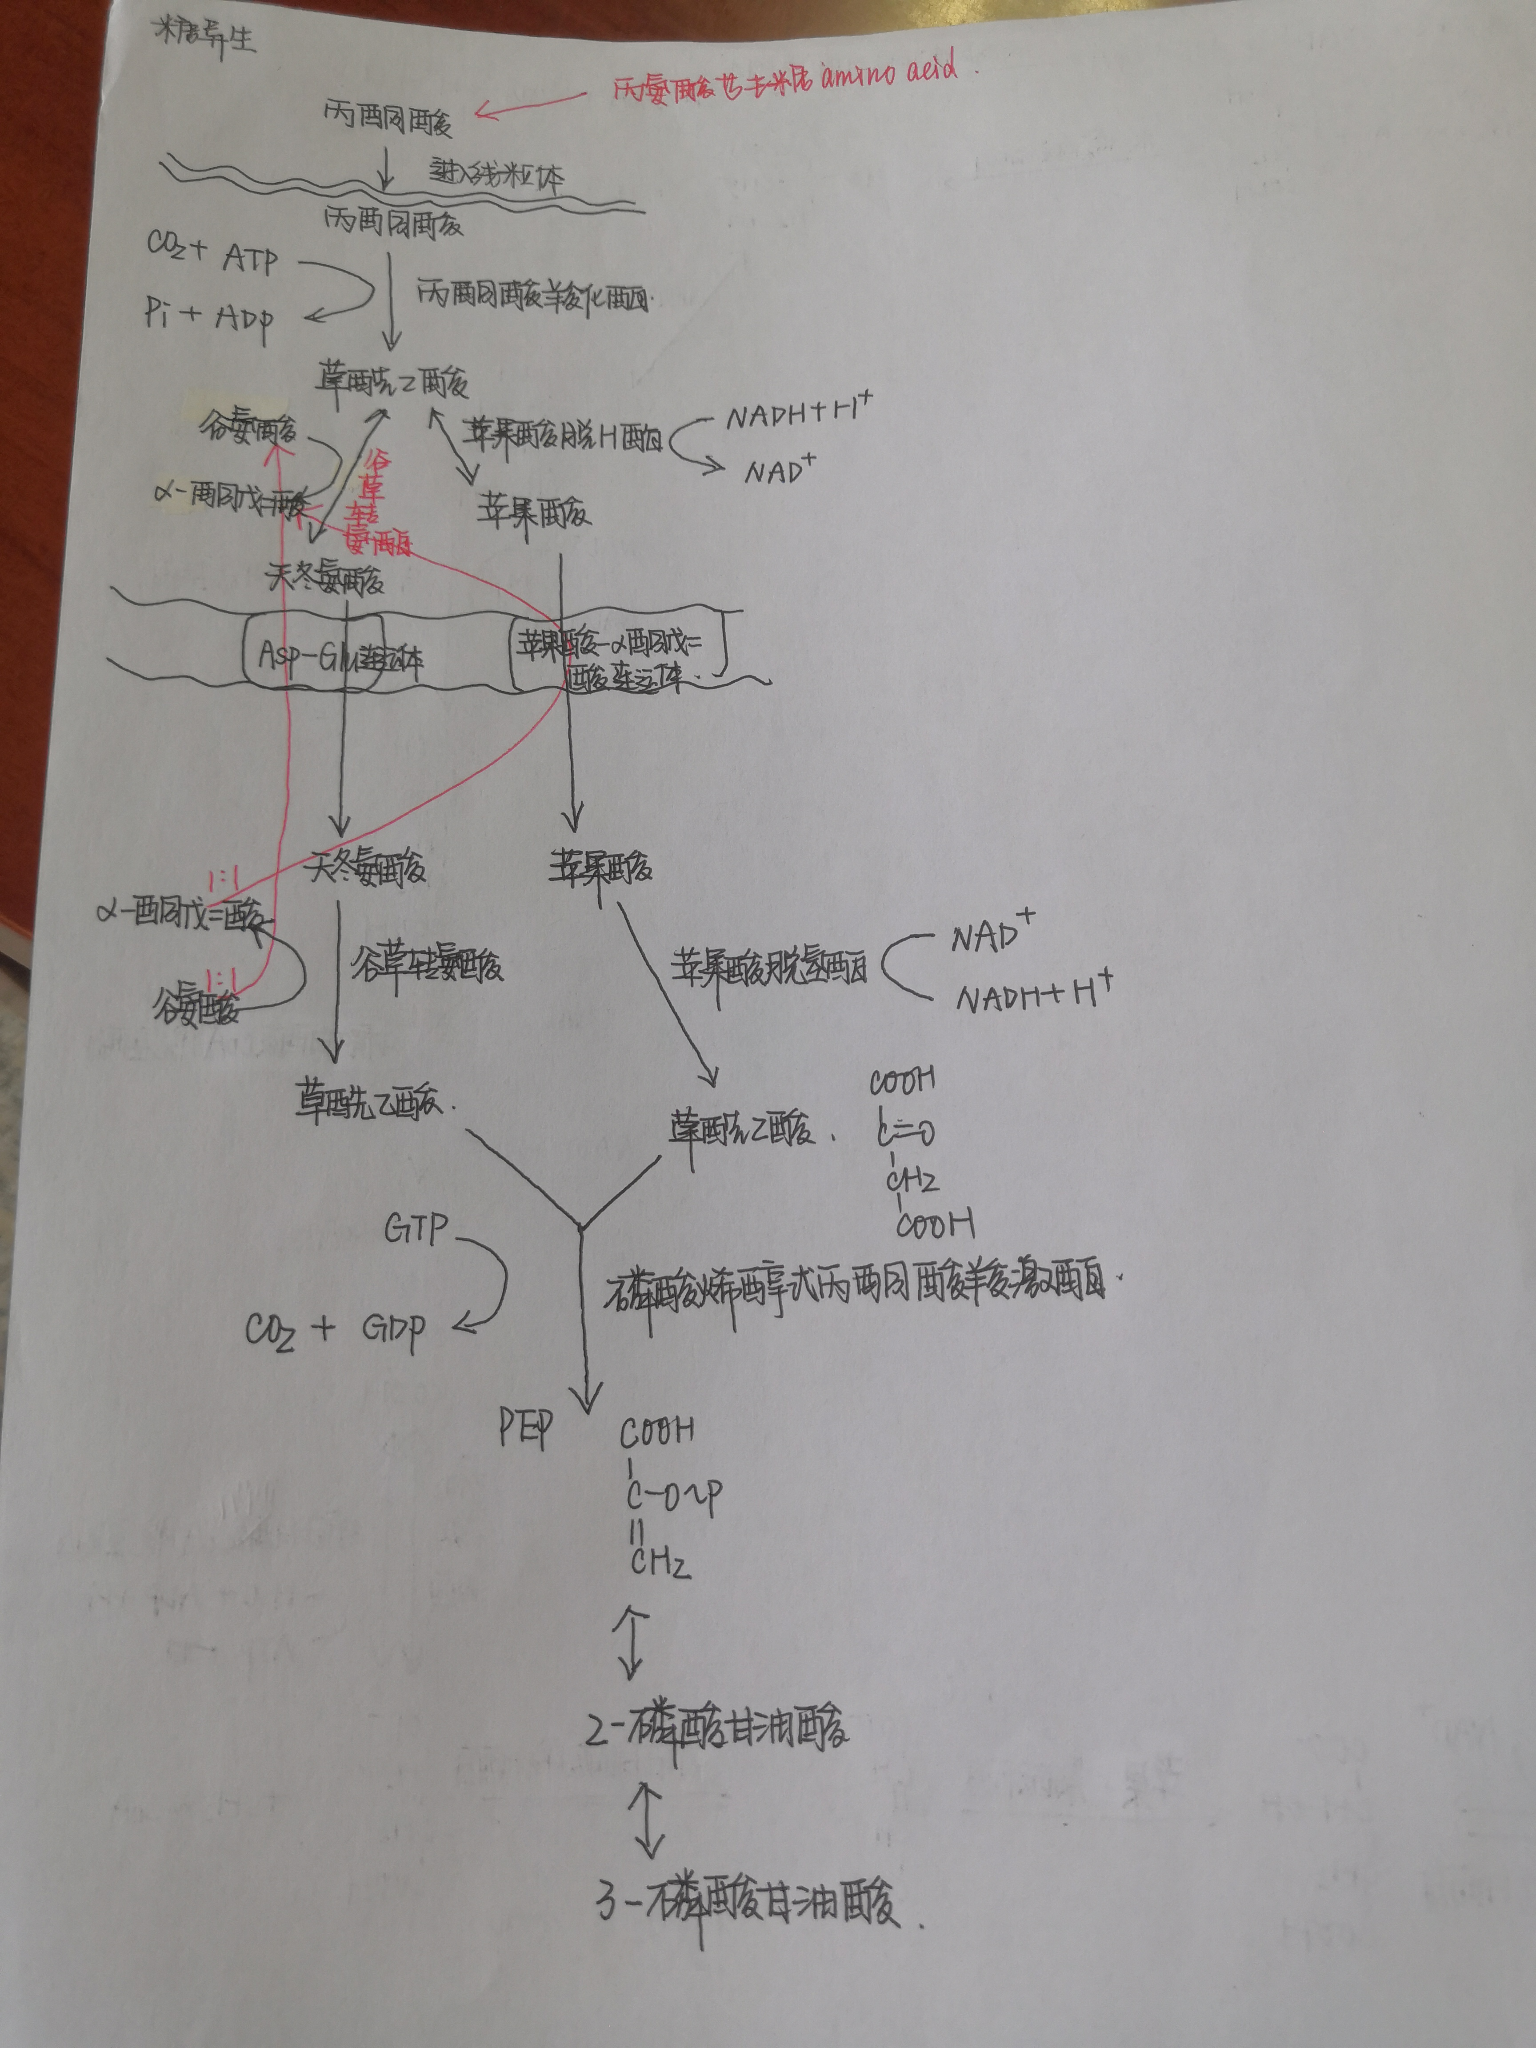 糖异生
丙氨酸等生糖 amino acid.
丙酮酸
进入线粒体
丙酮酸
CO2 + ATP
丙酮酸羧化酶.
Pi + ADP
草酰乙酸
谷氨酸
苹果酸脱H酶
NADH+H+
NAD+
谷草转氨酶
α-酮戊二酸
苹果酸
天冬氨酸
Asp-Glu转运体
苹果酸-α酮戊二
酸转运体.
天冬氨酸
苹果酸
1:1
α-酮戊二酸
谷草转氨酸
苹果酸脱氢酶
NAD+
NADH+H+
1:1
谷氨酸
草酰乙酸.
草酰乙酸.
COOH
C=O
CH2
COOH
GTP
磷酸烯醇式丙酮酸羧激酶.
CO2 + GDP
PEP
COOH
C-O~P
CH2
2-磷酸甘油酸
3-磷酸甘油酸.